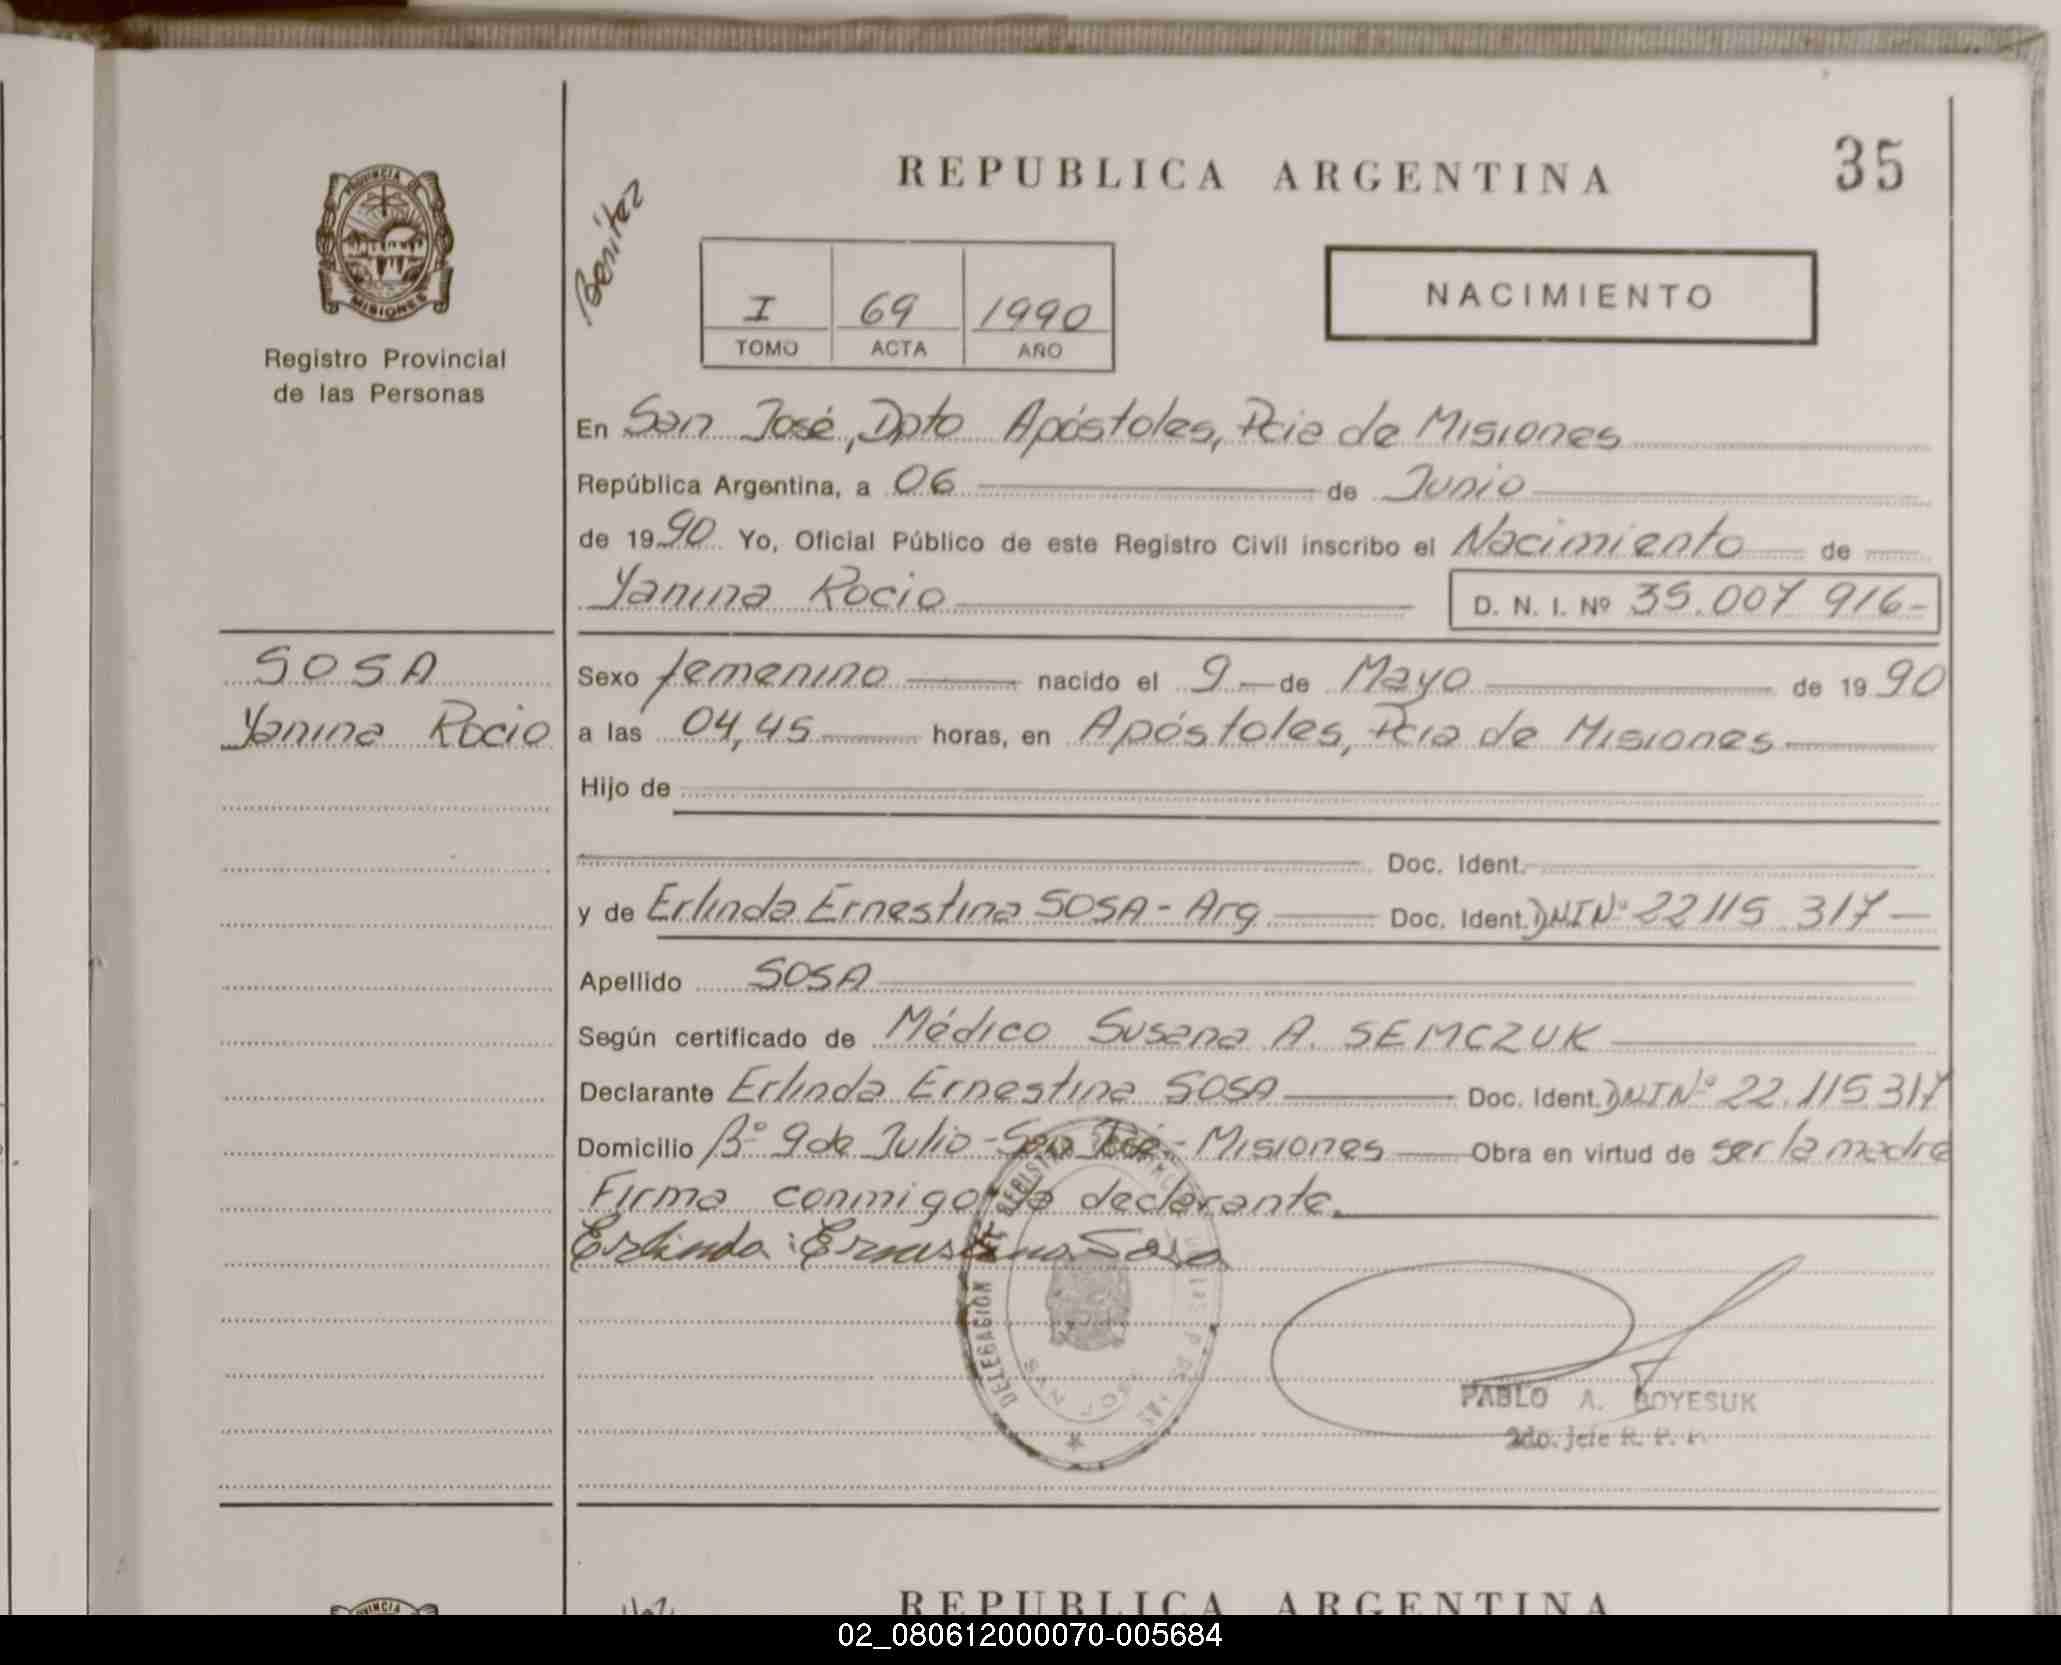 35
REPUBLICA ARGENTINA
Benítez
PROVINCIA DE
MISIONES
Registro Provincial
de las Personas
I 69 1990
TOMO ACTA AÑO
NACIMIENTO
En San José, Dpto Apóstoles, Pcia de Misiones
República Argentina, a 06 de Junio
de 1990 Yo, Oficial Público de este Registro Civil inscribo el Nacimiento de
Yanina Rocio D. N. I. Nº 35.007 916-
SOSA
Yanina Rocio
Sexo femenino nacido el 9 de Mayo de 1990
a las 04,45 horas, en Apóstoles, Pcia de Misiones
Hijo de
Doc. Ident.
y de Erlinda Ernestina SOSA - Arg Doc. Ident. DNI Nº 22115 317
Apellido SOSA
Según certificado de Médico Susana A. SEMCZUK
Declarante Erlinda Ernestina SOSA Doc. Ident. DNI Nº 22.115 317
Domicilio Bº 9 de Julio - San José - Misiones Obra en virtud de ser la madre
Firma conmigo la declarante.
Erlinda Ernestina Sosa
DELEGACION
SAN JOSE
PABLO A. BOYESUK
2do. Jefe R. P. P.
PROVINCIA
REPUBLICA ARGENTINA
02_080612000070-005684